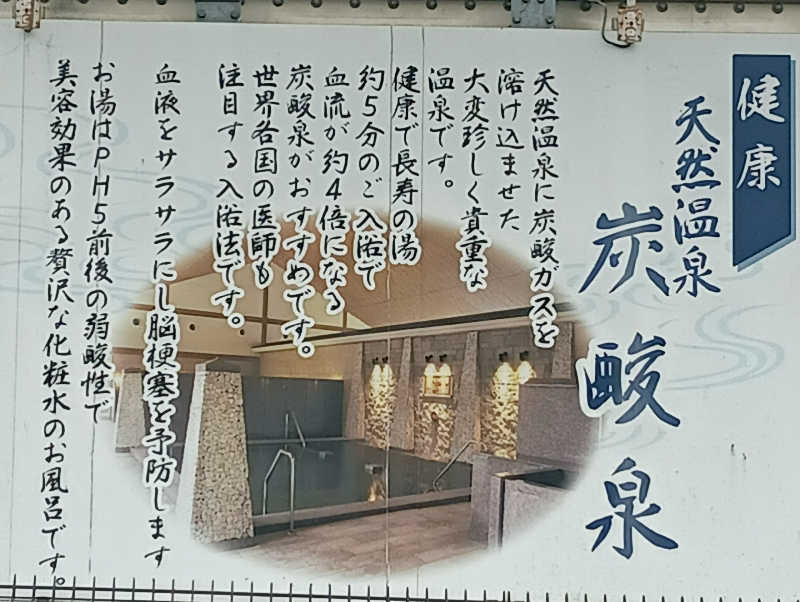 健康
天然温泉
炭酸泉
天然温泉に炭酸ガスを
溶け込ませた
大変珍しく貴重な
温泉です。
健康で長寿の湯
約5分のご入浴で
血流が約4倍になる
炭酸泉がおすすめです。
世界各国の医師も
注目する入浴法です。
血液をサラサラにし脳梗塞を予防します
お湯はPH5前後の弱酸性で
美容効果のある贅沢な化粧水のお風呂です。